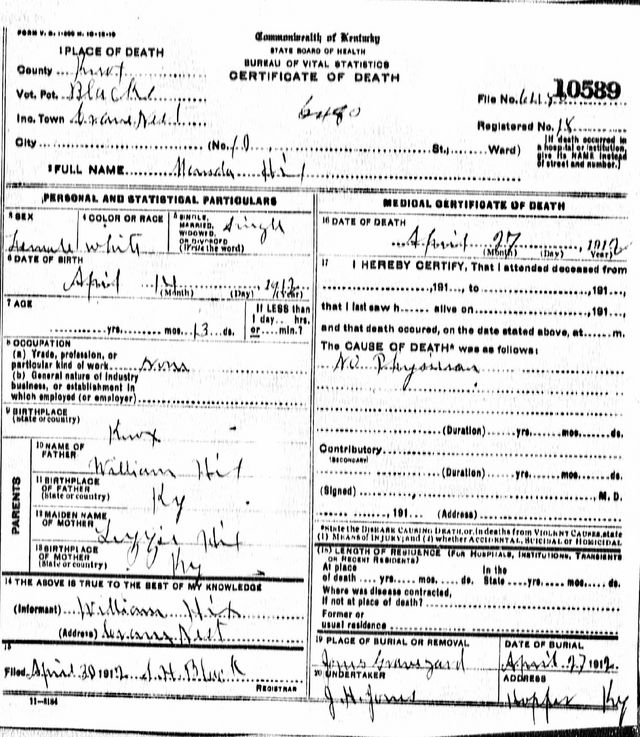 FORM V. S. 1-200 M. 10-12-10
Commonwealth of Kentucky
STATE BOARD OF HEALTH
BUREAU OF VITAL STATISTICS
CERTIFICATE OF DEATH
1 PLACE OF DEATH
County Knox
Vot. Pct. Black
Inc. Town
City (No. St., Ward)
File No. 10589
Registered No. 18
[If death occurred in a hospital or institution, give its NAME instead of street and number.]
2 FULL NAME Hix
PERSONAL AND STATISTICAL PARTICULARS
3 SEX Female
4 COLOR OR RACE White
5 SINGLE, MARRIED, WIDOWED, OR DIVORCED (Write the word) Single
6 DATE OF BIRTH
April 14, 1912
(Month) (Day) (Year)
7 AGE
yrs. mos. 13 ds.
If LESS than 1 day hrs. or min.?
8 OCCUPATION
(a) Trade, profession, or particular kind of work None
(b) General nature of industry business, or establishment in which employed (or employer)
9 BIRTHPLACE (State or country)
Knox
PARENTS
10 NAME OF FATHER
William Hix
11 BIRTHPLACE OF FATHER (State or country)
Ky
12 MAIDEN NAME OF MOTHER
Lizzie Hix
13 BIRTHPLACE OF MOTHER (State or country)
Ky
14 THE ABOVE IS TRUE TO THE BEST OF MY KNOWLEDGE
(Informant) William Hix
(Address) Nest
15
Filed April 30 1912 Black
REGISTRAR
11-8184
MEDICAL CERTIFICATE OF DEATH
16 DATE OF DEATH
April 27, 1912
(Month) (Day) (Year)
17 I HEREBY CERTIFY, That I attended deceased from
, 191 , to , 191 ,
that I last saw h alive on , 191 ,
and that death occured, on the date stated above, at m.
The CAUSE OF DEATH* was as follows:
No Physician
(Duration) yrs. mos. ds.
Contributory
(SECONDARY)
(Duration) yrs. mos. ds.
(Signed) M. D.
, 191 (Address)
*State the DISEASE CAUSING DEATH, or, in deaths from VIOLENT CAUSES, state
(1) MEANS OF INJURY; and (2) whether ACCIDENTAL, SUICIDAL or HOMICIDAL
18 LENGTH OF RESIDENCE (FOR HOSPITALS, INSTITUTIONS, TRANSIENTS OR RECENT RESIDENTS)
At place of death yrs. mos. ds. In the State yrs. mos. ds.
Where was disease contracted,
If not at place of death?
Former or
usual residence
19 PLACE OF BURIAL OR REMOVAL
Jones Graveyard
DATE OF BURIAL
April 27 1912
20 UNDERTAKER
J. H. Jones
ADDRESS
Hopper Ky